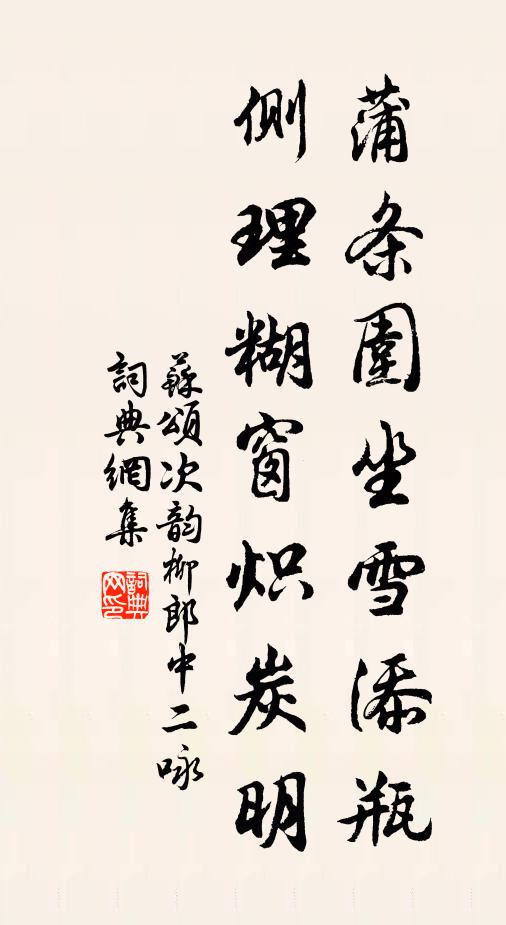 蒲条圍坐雪添瓶
側理糊窗炽炭明
蘇頌次韵柳郎中二咏
詞典網集
詞典网印